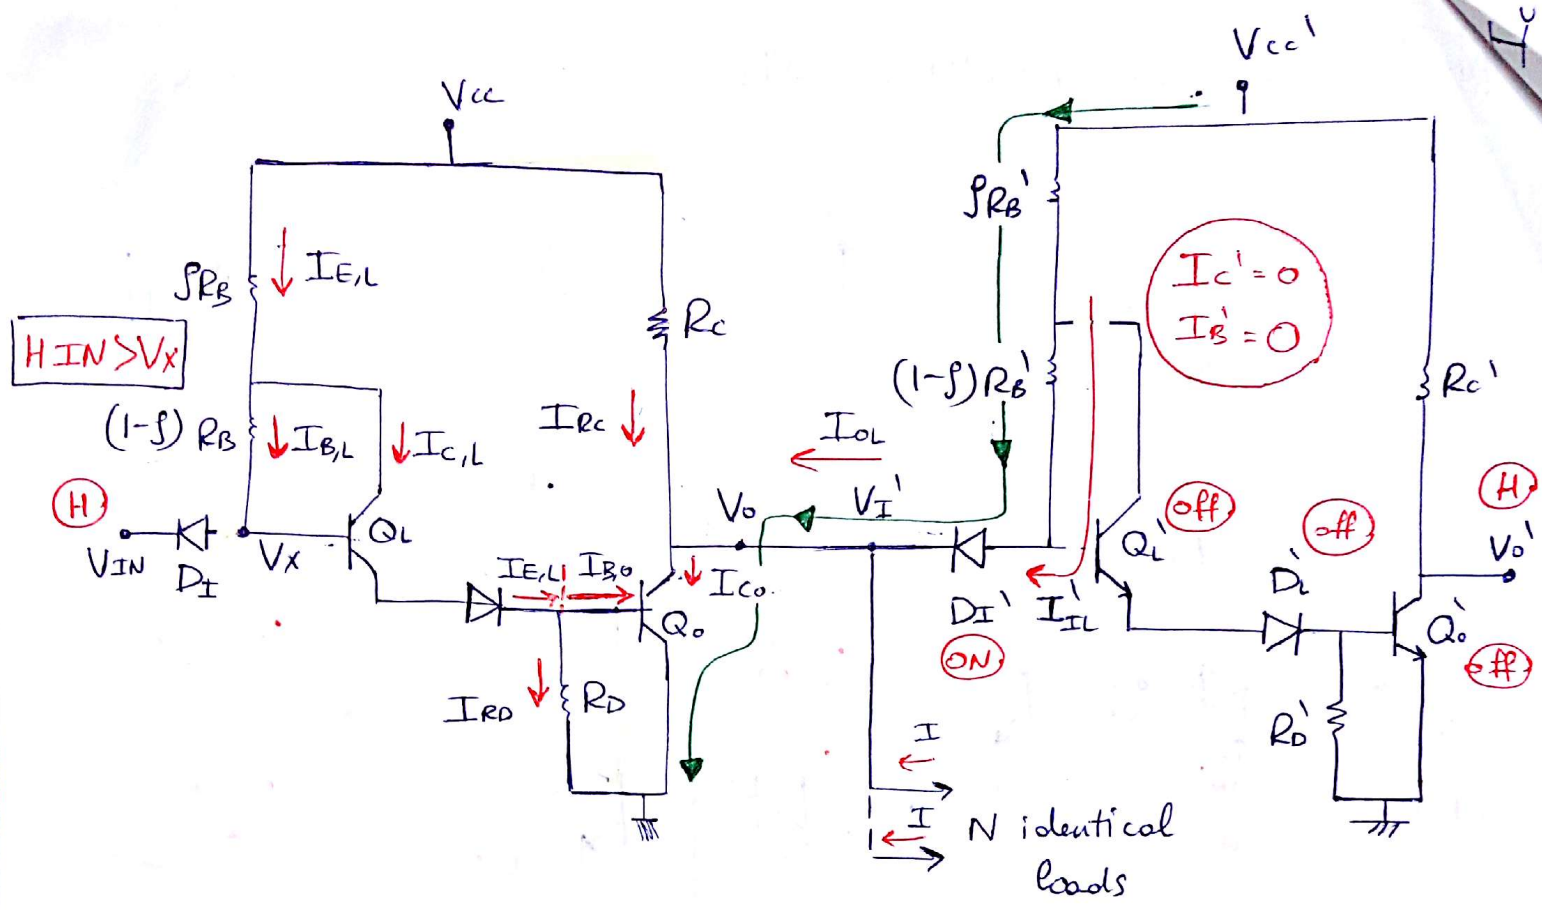 Vcc
Vcc'
4
ρRB
IE,L
H IN > Vx
(1-ρ) RB
IB,L
IC,L
RC
IRC
H
VIN
DI
Vx
QL
IE,L
IB,O
ICO
QO
IRD
RD
VO
IOL
VI'
ρRB'
(1-ρ) RB'
IC' = 0
IB' = 0
RC'
DI'
ON
IIL'
QL'
off
off
DL'
H
VO'
QO'
off
RD'
I
I
N identical
loads